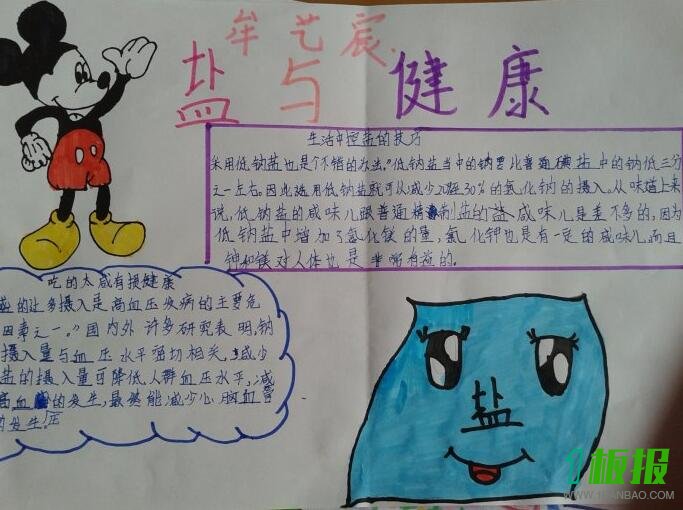 牟艺宸
盐与健康
生活中控盐的技巧
采用低钠盐也是个不错的办法。"低钠盐当中的钠要比普通碘盐中的钠低三分
之一左右。因此选用低钠盐就可以减少30%的氯化钠的摄入。从味道上来
说,低钠盐的咸味儿跟普通精制盐的盐咸味儿是差不多的,因为
低钠盐中增加了氯化镁的量,氯化钾也是有一定的咸味儿,而且
钾和镁对人体也是非常有益的。
吃的太咸有损健康
盐的过多摄入是高血压疾病的主要危
因素之一。"国内外许多研究表明,钠
摄入量与血压水平密切相关,减少
盐的摄入量可降低人群血压水平,减
高血的发生,最终能减少心脑血管
的发生。
盐
板报
WWW.1BANBAO.COM